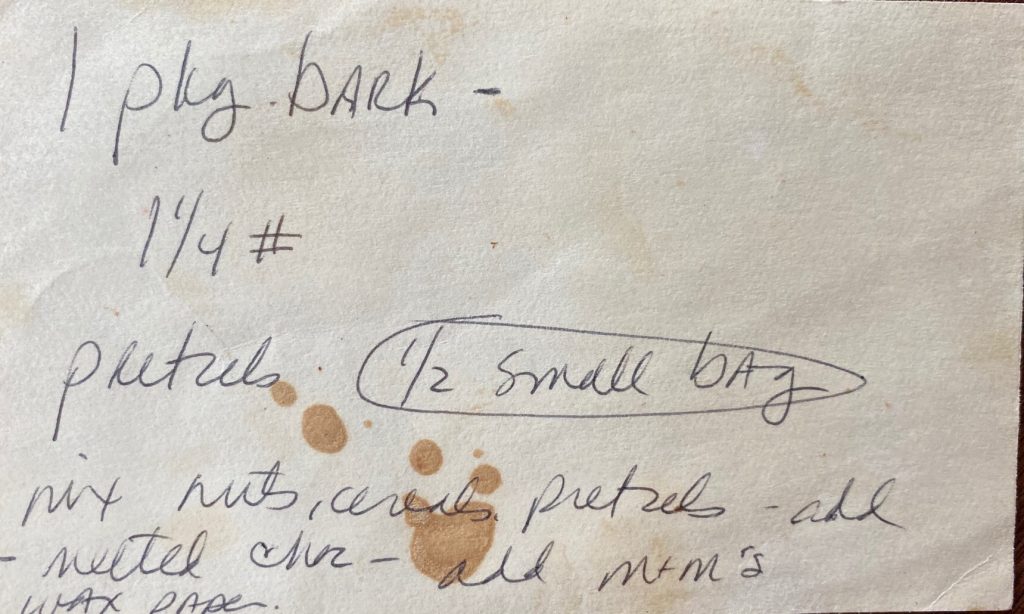 1 pkg. bARK -
1 1/4 #
pretzels 1/2 small bAg
mix nuts, cereals, pretzels - add
- melted choc - add m+m's
WAX PAPER.